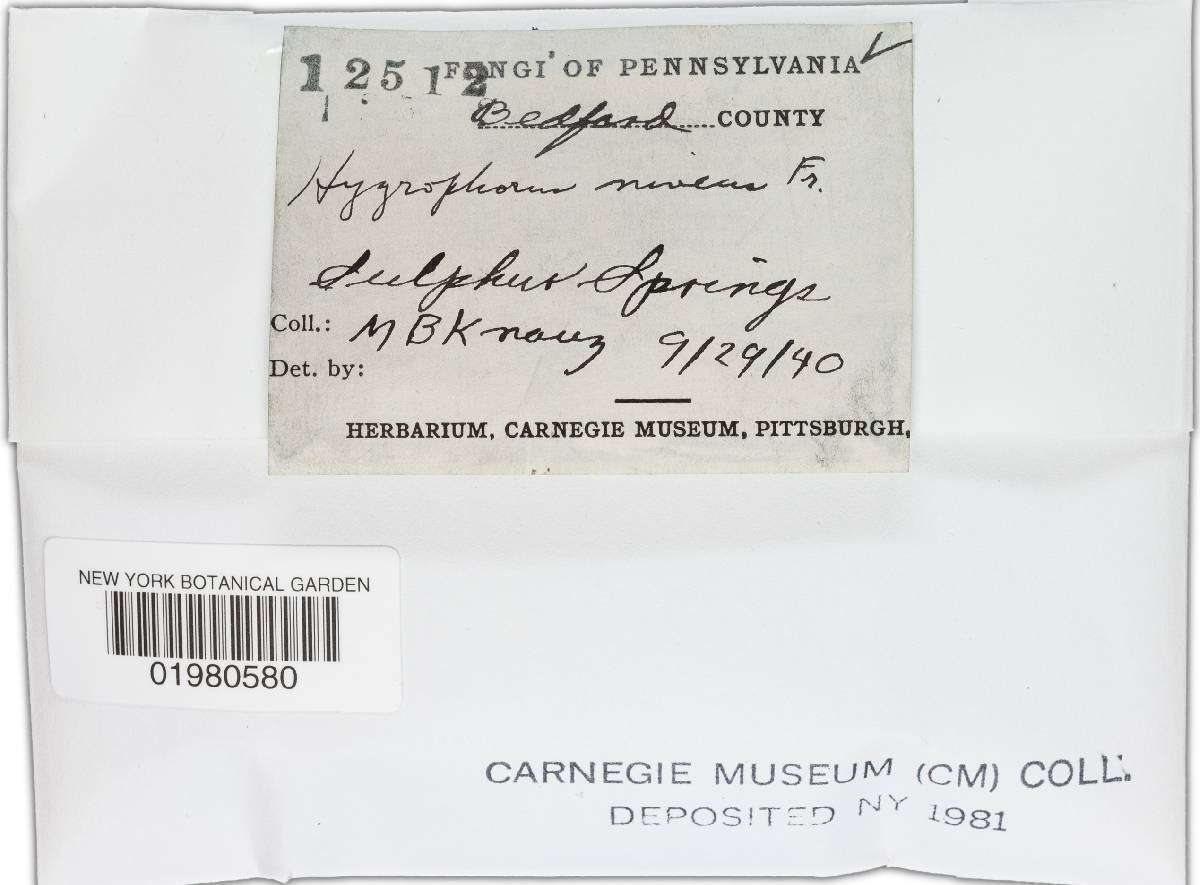 12512
FUNGI OF PENNSYLVANIA
Bedford COUNTY
Hygrophorus niveus Fr.
Sulphur Springs
Coll.: M B Knauz 9/29/40
Det. by:
HERBARIUM, CARNEGIE MUSEUM, PITTSBURGH,
NEW YORK BOTANICAL GARDEN
01980580
CARNEGIE MUSEUM (CM) COLL.
DEPOSITED NY 1981